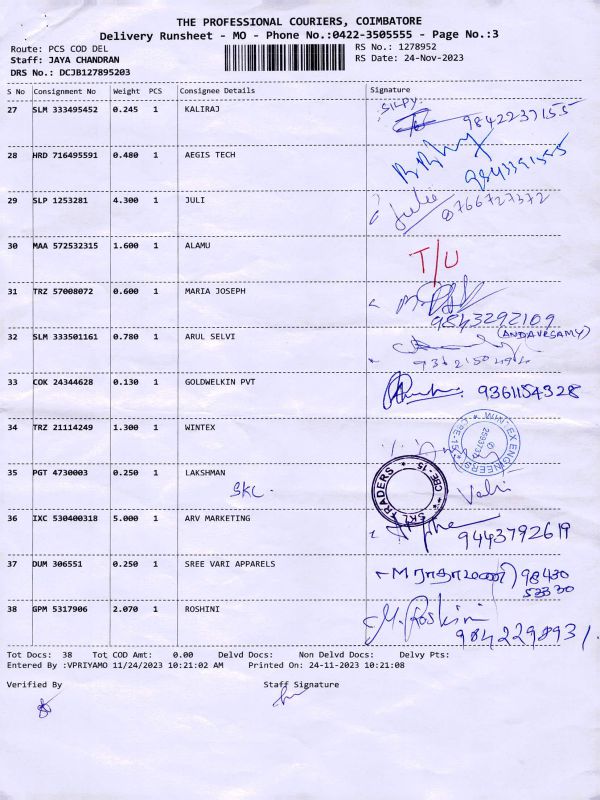 THE PROFESSIONAL COURIERS, COIMBATORE
Delivery Runsheet - MO - Phone No.:0422-3505555 - Page No.:3
Route: PCS COD DEL RS No.: 1278952
Staff: JAYA CHANDRAN RS Date: 24-Nov-2023
DRS No.: DCJB127895203
S No Consignment No Weight PCS Consignee Details Signature
27 SLM 333495452 0.245 1 KALIRAJ SILPY 9842237155
28 HRD 716495591 0.480 1 AEGIS TECH
29 SLP 1253281 4.300 1 JULI Julie 8766727372
30 MAA 572532315 1.600 1 ALAMU T/U
31 TRZ 57008072 0.600 1 MARIA JOSEPH 9843292109
(ANDAVESAMY)
32 SLM 333501161 0.780 1 ARUL SELVI
33 COK 24344628 0.130 1 GOLDWELKIN PVT 9361154328
34 TRZ 21114249 1.300 1 WINTEX
35 PGT 4730003 0.250 1 LAKSHMAN
SKL TRADERS * CBE-15 *
SKL
36 IXC 530400318 5.000 1 ARV MARKETING 9443792619
37 DUM 306551 0.250 1 SREE VARI APPARELS M ராதாமணி 98430
53330
38 GPM 5317906 2.070 1 ROSHINI M. Roskini
9842298931
Tot Docs: 38 Tot COD Amt: 0.00 Delvd Docs: Non Delvd Docs: Delvy Pts:
Entered By :VPRIYAMO 11/24/2023 10:21:02 AM Printed On: 24-11-2023 10:21:08
Verified By Staff Signature